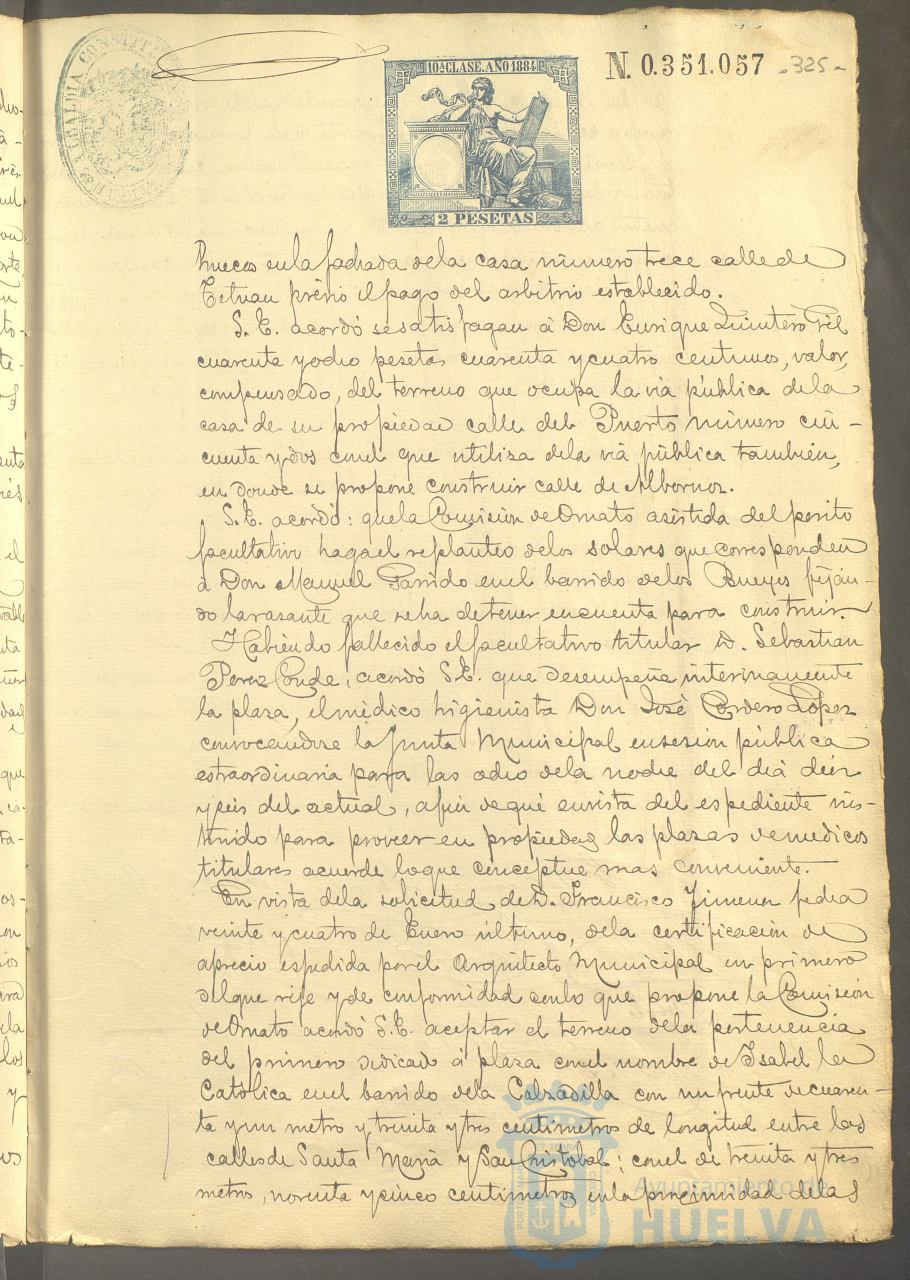 ALCALDIA CONSTIT
10ª CLASE. AÑO 1884
2 PESETAS
N. 0.351.057 -325-
huecos en la fachada de la casa número trece calle de
Tetuan prévio el pago del arbitrio establecido.
S. E. acordó se satisfagan á Don Enrique Quintero Gil
cuarenta y ocho pesetas cuarenta y cuatro centimos, valor,
compensado, del terreno que ocupa la via pública de la
casa de su propiedad calle del Puerto número cin-
cuenta y dos con el que utiliza de la viá pública también,
en donde se propone construir calle de Albornoz.
S. E. acordó: que la Comisión de Ornato asistida del perito
facultativo haga el replanteo de los solares que corresponden
á Don Manuel Garrido en el barrido de los Bueyes fiján-
do la rasante que se ha de tener en cuenta para construir.
Habiendo fallecido el facultativo titular D. Sebastian
Perez Conde, acordó S.E. que desempeñe interinamente
la plaza, el médico higienista Don José Cordero López
convocandose la Junta Municipal en sesión pública
estraordinaria para las ocho de la noche del diá diez
y seis del actual, afin de qué en vista del espediente ins-
truido para proveer en propiedad las plazas de medicos
titulares acuerde lo que conceptue mas conveniente.
En vista de la solicitud de D. Francisco Jimenez fecha
veinte y cuatro de Enero último, de la certificación de
aprecio espedida por el Arquitecto Municipal en primero
del que rije y de conformidad con lo que propone la Comisión
de Ornato acordó S.E. aceptar el terreno de la pertenencia
del primero dedicado á plaza con el nombre de Isabel la
Católica en el barrido de la Calzadilla con un frente de cuaren-
ta y un metro y treinta y tres centimetros de longitud entre las
calles de Santa Mariá y San Cristobal; con el de treinta y tres
metros, noventa y cinco centimetros en la proximidad de las
Ayuntamiento de
HUELVA